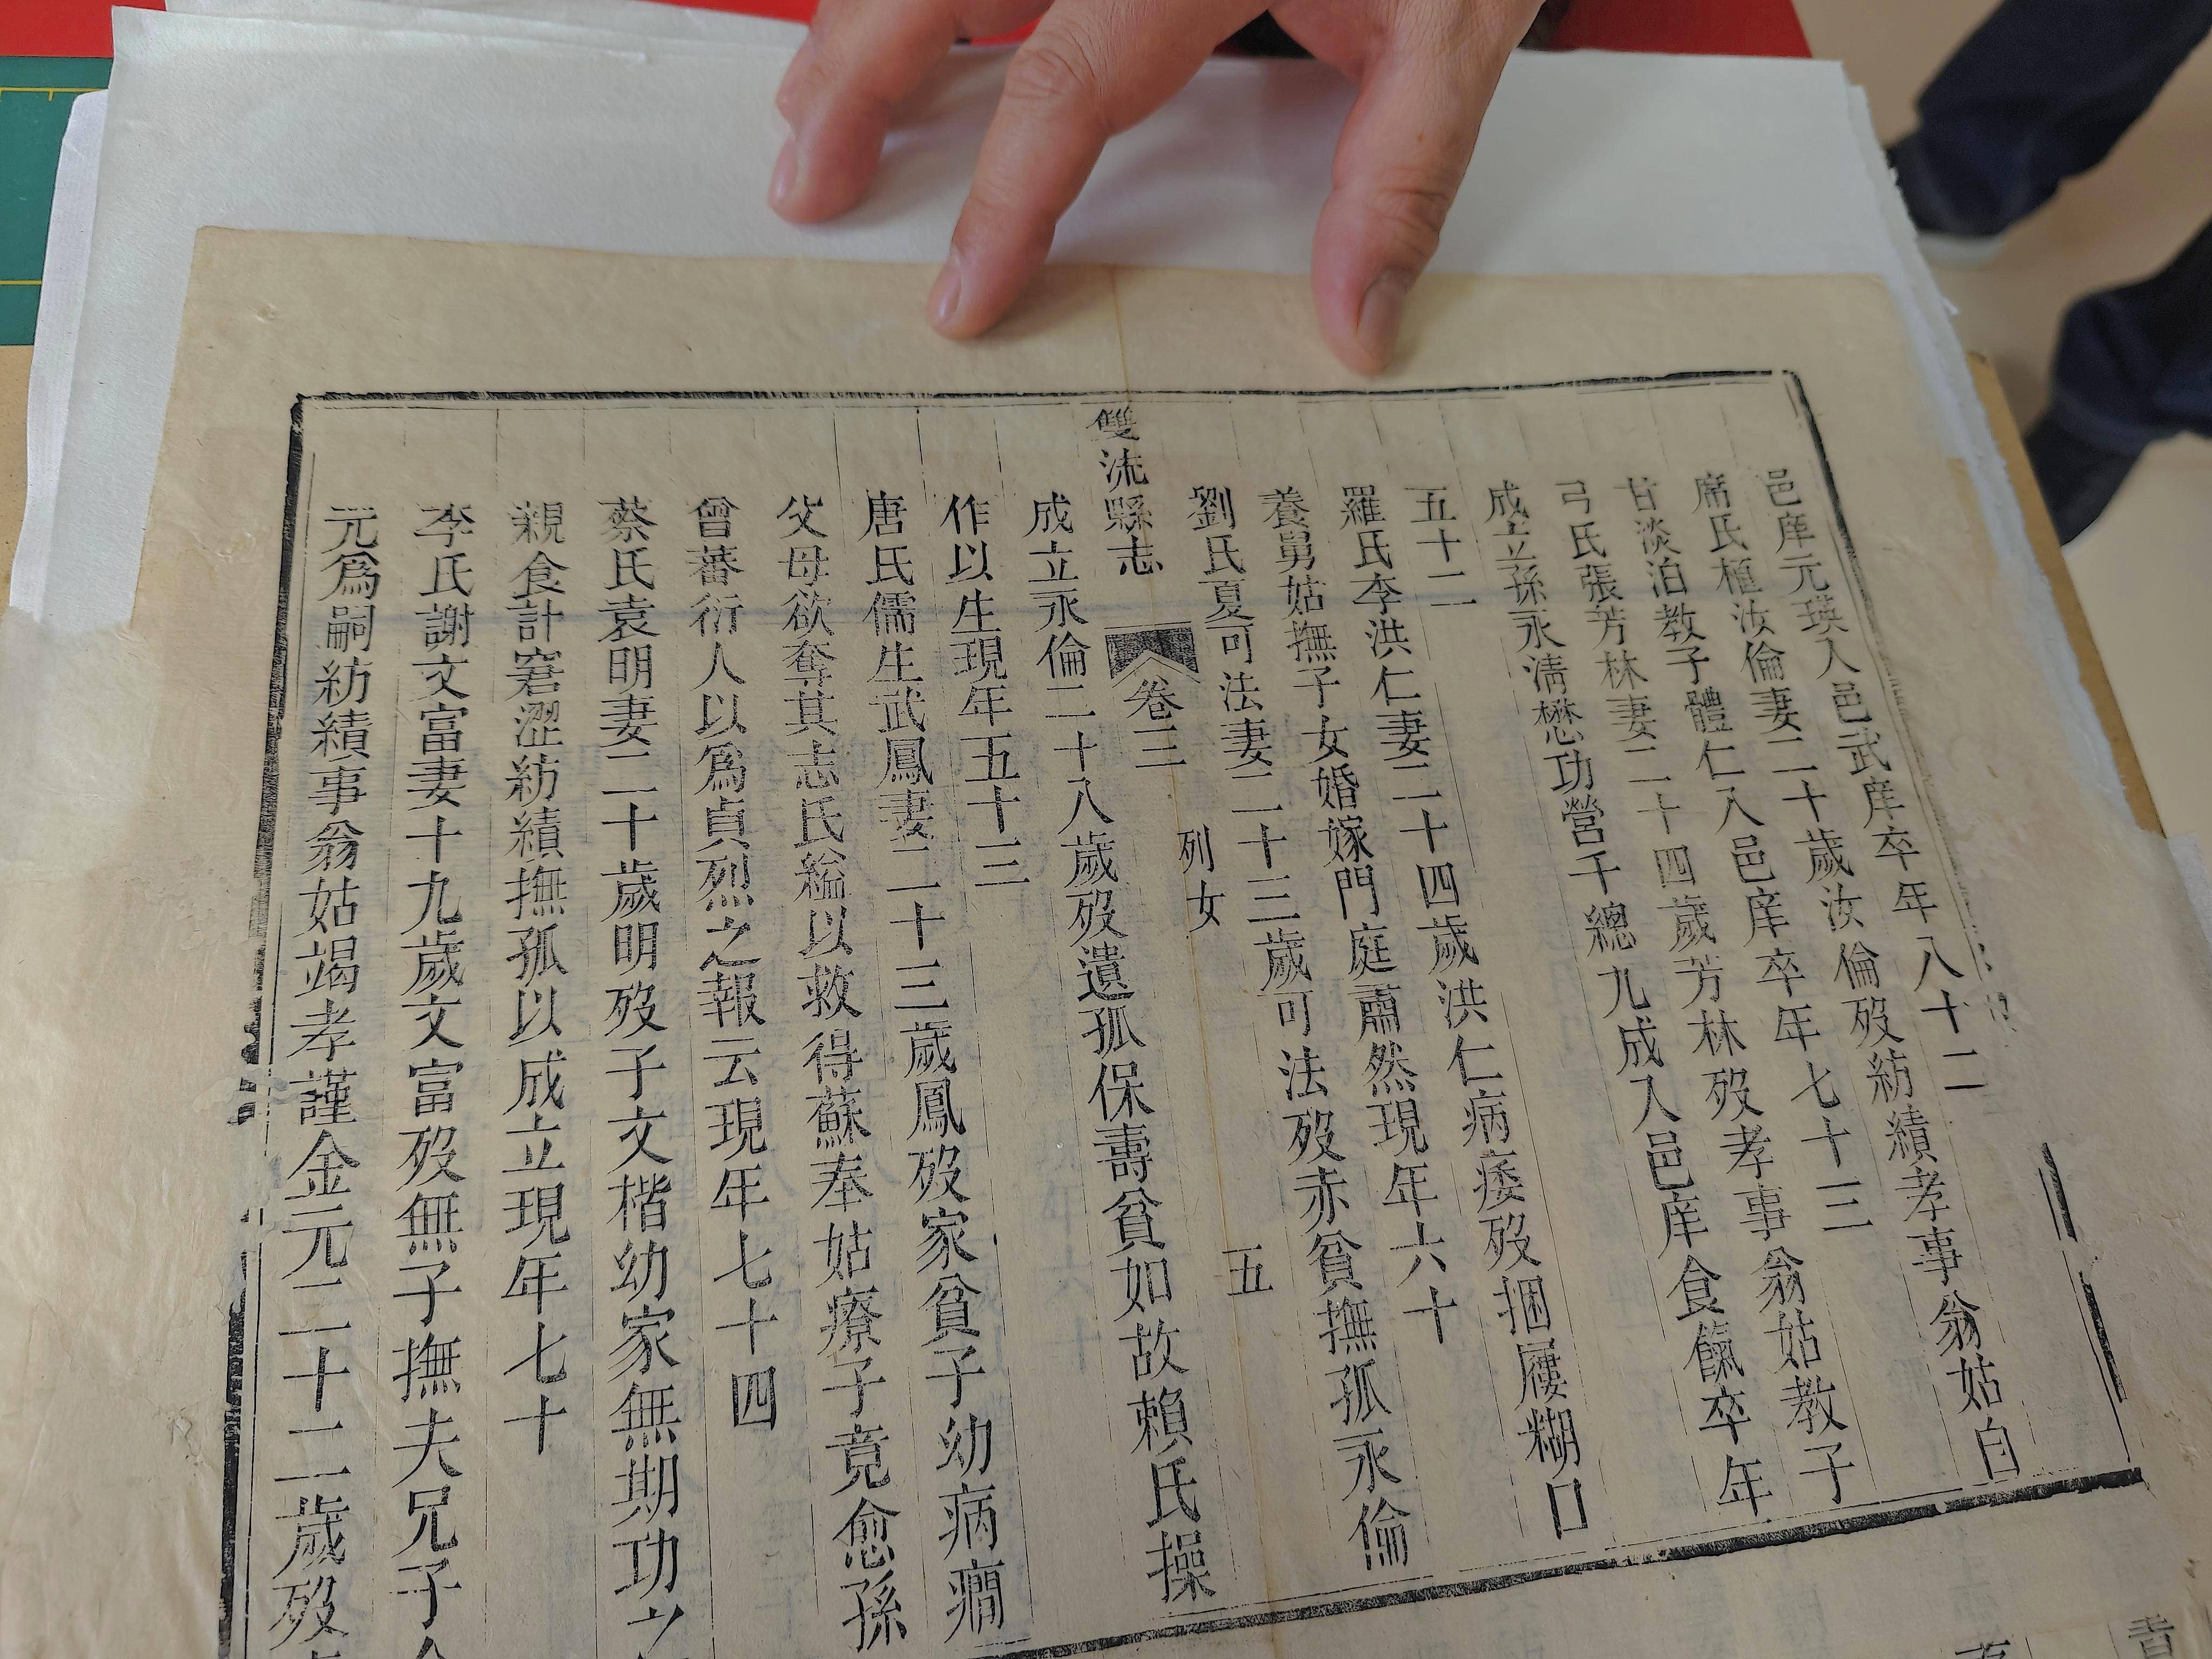 邑庠元瑛入邑武庠卒年八十二
席氏植汝倫妻二十歲汝倫歿紡績孝事翁姑自
甘淡泊教子體仁入邑庠卒年七十三
弓氏張芳林妻二十四歲芳林歿孝事翁姑教子
成立孫永清懋功營千總九成入邑庠食餼卒年
五十二
羅氏李洪仁妻二十四歲洪仁病痿歿捆屨糊口
養舅姑撫子女婚嫁門庭肅然現年六十
劉氏夏可法妻二十三歲可法歿赤貧撫孤永倫
雙流縣志
卷三
列女
五
成立永倫二十八歲歿遺孤保壽貧如故賴氏操
作以生現年五十三
唐氏儒生武鳳妻二十三歲鳳歿家貧子幼病癎
父母欲奪其志氏縊以救得蘇奉姑療子竟愈孫
曾蕃衍人以為貞烈之報云現年七十四
蔡氏袁明妻二十歲明歿子文楷幼家無期功之
親食計窘澀紡績撫孤以成立現年七十
李氏謝文富妻十九歲文富歿無子撫夫兄子
元為嗣紡績事翁姑竭孝謹金元二十二歲歿